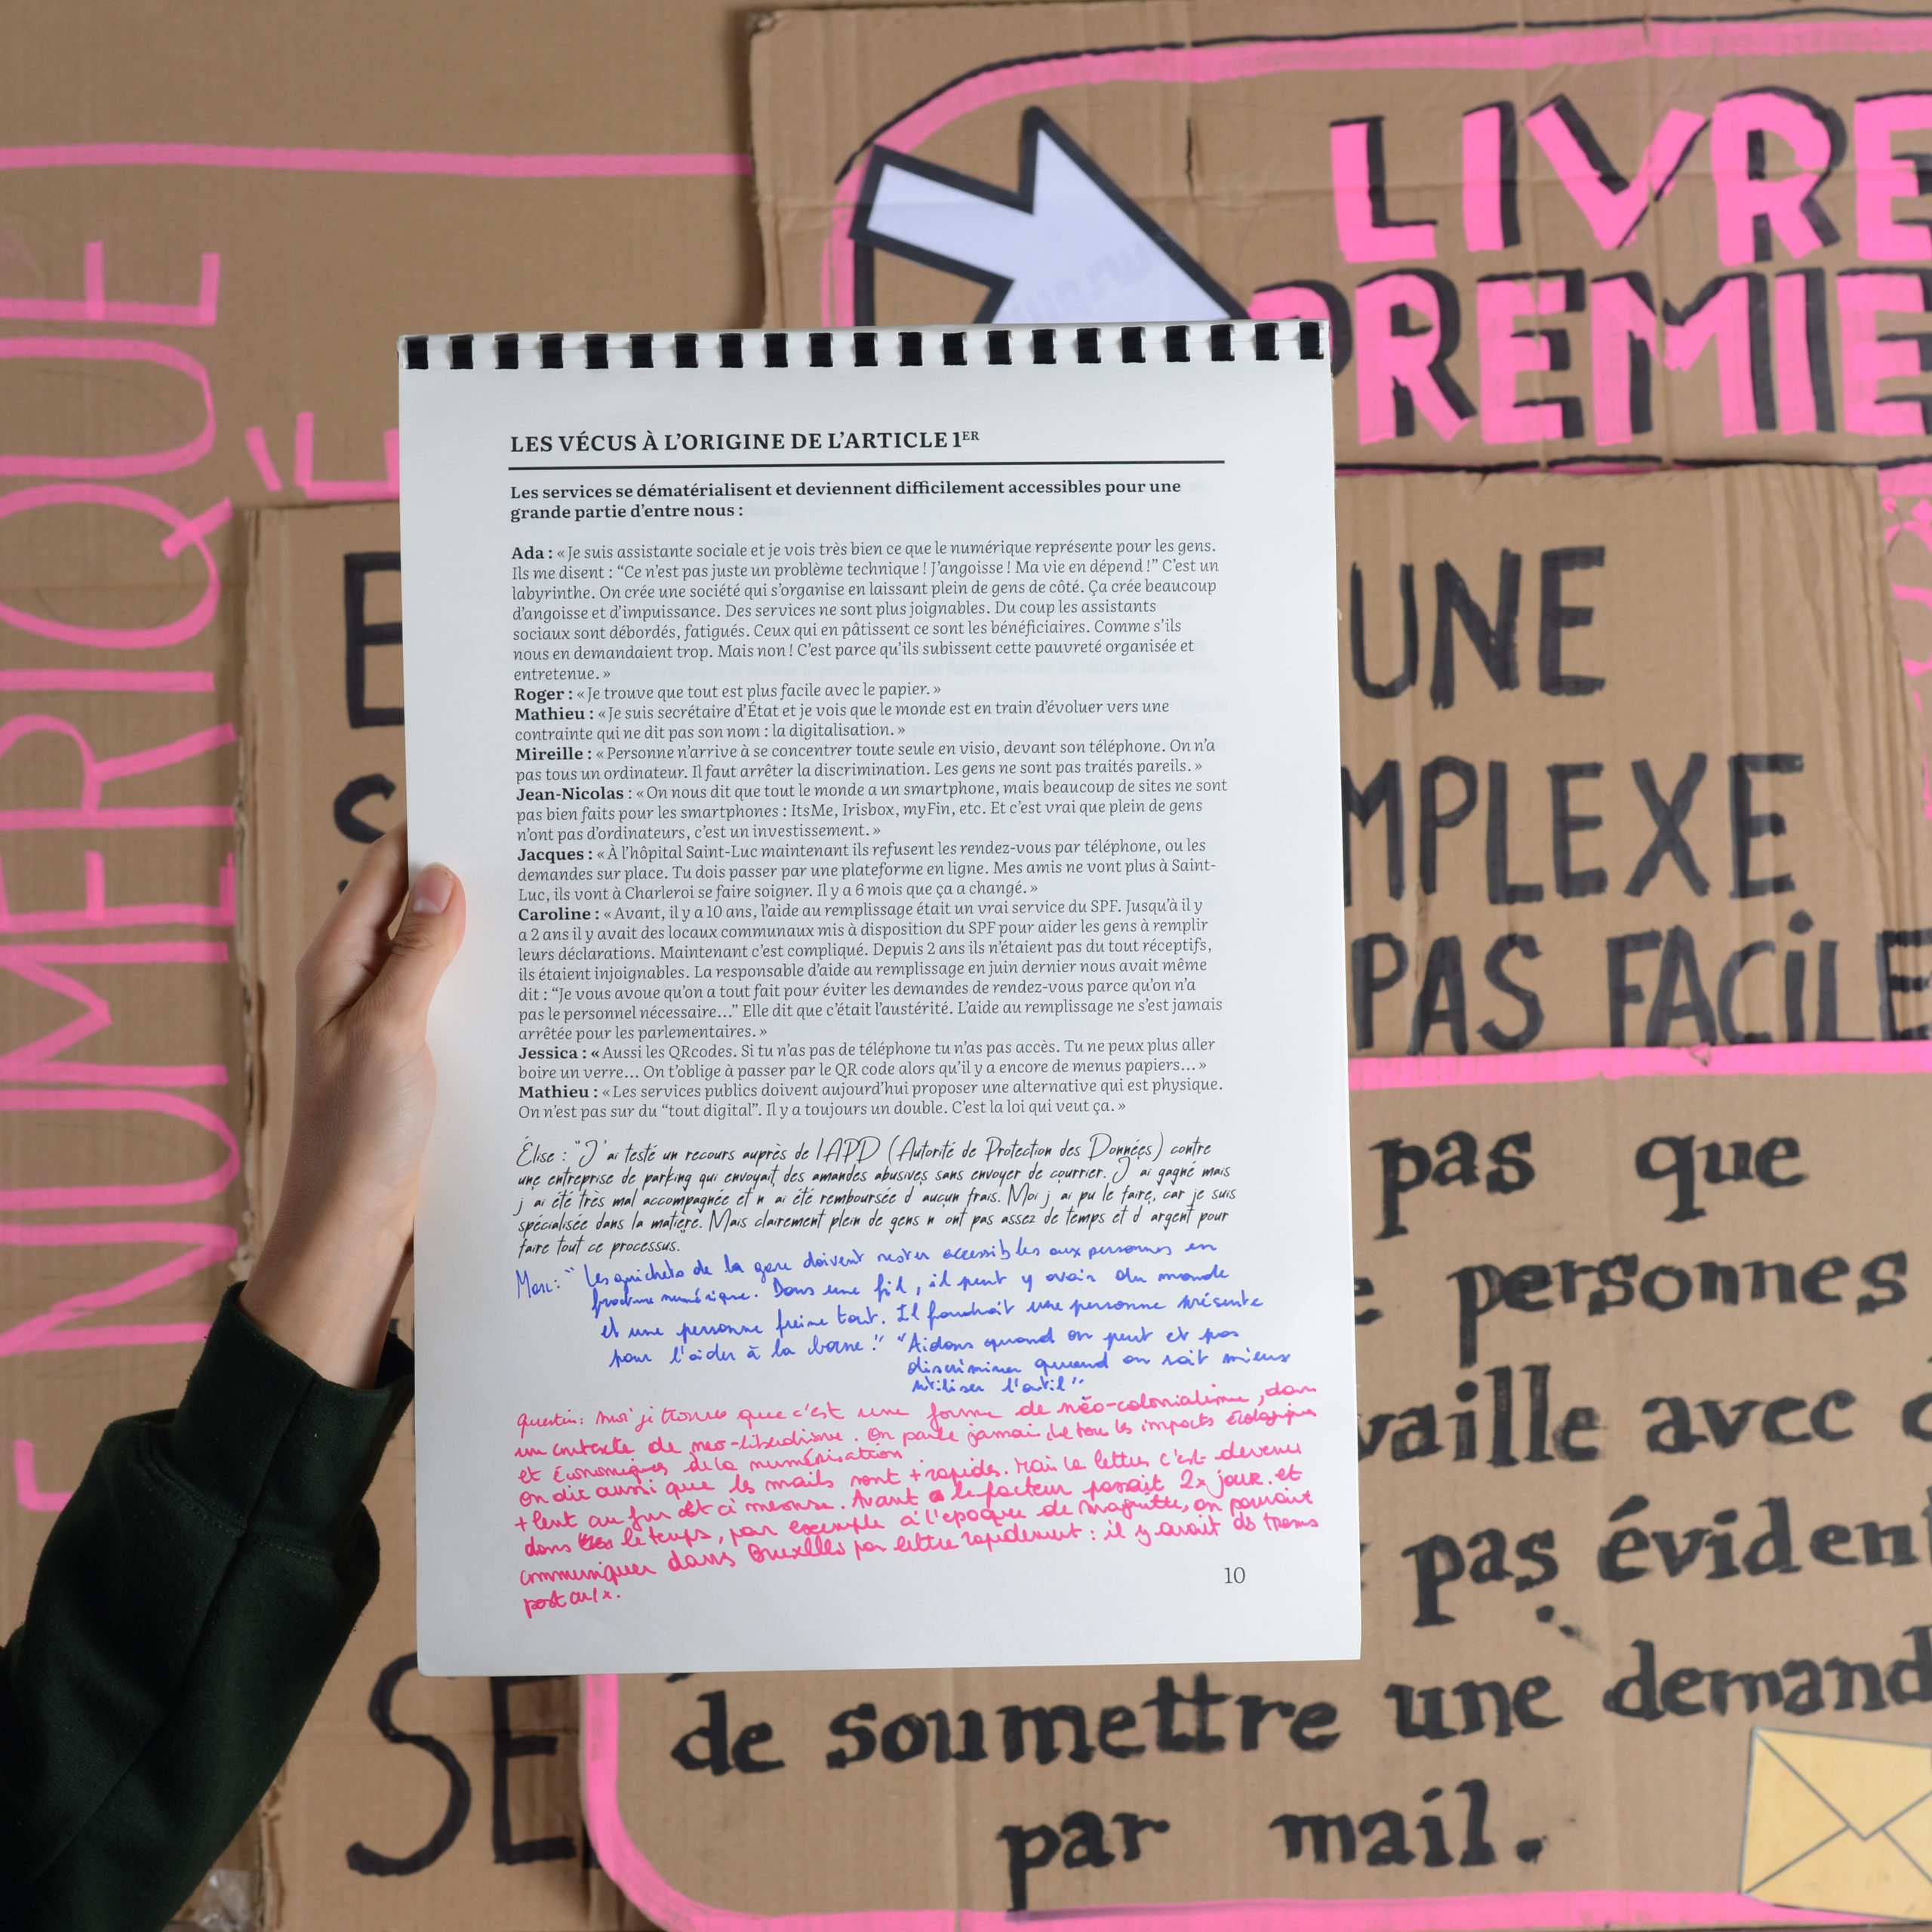 NUMERIQUE
LIVRE
PREMIE
UNE
MPLEXE
PAS FACILE
pas que
personnes
vaille avec
pas évident
de soumettre une demand
par mail.
SE
LES VÉCUS À L'ORIGINE DE L'ARTICLE 1ER
Les services se dématérialisent et deviennent difficilement accessibles pour une
grande partie d'entre nous :
Ada : « Je suis assistante sociale et je vois très bien ce que le numérique représente pour les gens.
Ils me disent : “Ce n'est pas juste un problème technique ! J'angoisse ! Ma vie en dépend !” C'est un
labyrinthe. On crée une société qui s'organise en laissant plein de gens de côté. Ça crée beaucoup
d'angoisse et d'impuissance. Des services ne sont plus joignables. Du coup les assistants
sociaux sont débordés, fatigués. Ceux qui en pâtissent ce sont les bénéficiaires. Comme s'ils
nous en demandaient trop. Mais non ! C'est parce qu'ils subissent cette pauvreté organisée et
entretenue. »
Roger : « Je trouve que tout est plus facile avec le papier. »
Mathieu : « Je suis secrétaire d'État et je vois que le monde est en train d'évoluer vers une
contrainte qui ne dit pas son nom : la digitalisation. »
Mireille : « Personne n'arrive à se concentrer toute seule en visio, devant son téléphone. On n'a
pas tous un ordinateur. Il faut arrêter la discrimination. Les gens ne sont pas traités pareils. »
Jean-Nicolas : « On nous dit que tout le monde a un smartphone, mais beaucoup de sites ne sont
pas bien faits pour les smartphones : ItsMe, Irisbox, myFin, etc. Et c'est vrai que plein de gens
n'ont pas d'ordinateurs, c'est un investissement. »
Jacques : « À l'hôpital Saint-Luc maintenant ils refusent les rendez-vous par téléphone, ou les
demandes sur place. Tu dois passer par une plateforme en ligne. Mes amis ne vont plus à Saint-
Luc, ils vont à Charleroi se faire soigner. Il y a 6 mois que ça a changé. »
Caroline : « Avant, il y a 10 ans, l'aide au remplissage était un vrai service du SPF. Jusqu'à il y
a 2 ans il y avait des locaux communaux mis à disposition du SPF pour aider les gens à remplir
leurs déclarations. Maintenant c'est compliqué. Depuis 2 ans ils n'étaient pas du tout réceptifs,
ils étaient injoignables. La responsable d'aide au remplissage en juin dernier nous avait même
dit : “Je vous avoue qu'on a tout fait pour éviter les demandes de rendez-vous parce qu'on n'a
pas le personnel nécessaire...” Elle dit que c'était l'austérité. L'aide au remplissage ne s'est jamais
arrêtée pour les parlementaires. »
Jessica : « Aussi les QRcodes. Si tu n'as pas de téléphone tu n'as pas accès. Tu ne peux plus aller
boire un verre... On t'oblige à passer par le QR code alors qu'il y a encore de menus papiers... »
Mathieu : « Les services publics doivent aujourd'hui proposer une alternative qui est physique.
On n'est pas sur du “tout digital”. Il y a toujours un double. C'est la loi qui veut ça. »
Élise : "J'ai testé un recours auprès de l'APD (Autorité de Protection des Données) contre
une entreprise de parking qui envoyait des amandes abusives sans envoyer de courrier. J ai gagné mais
j ai été très mal accompagnée et n ai été remboursée d aucun frais. Moi j ai pu le faire, car je suis
spécialisée dans la matière. Mais clairement plein de gens n ont pas assez de temps et d argent pour
faire tout ce processus.
Marc: “Les guichets de la gare doivent rester accessibles aux personnes en
fracture numérique. Dans une fil, il peut y avoir du monde
et une personne freine tout. Il faudrait une personne présente
pour l'aider à la borne." "Aidons quand on peut et pas
discriminer quand on sait mieux
utiliser l'outil"
Quentin: moi je trouve que c'est une forme de néo-colonialisme, dans
un contexte de neo-libéralisme. On parle jamais de tous les impacts écologiques
et économiques de la numérisation
On dit aussi que les mails sont + rapides. Mais la lettre c'est devenu
+ lent au fur et à mesure. Avant le facteur passait 2x jour. et
dans le temps, par exemple à l'epoque de Magritte, on pouvait
communiquer dans Bruxelles par lettre rapidement : il y avait ds trams
postaux.
10